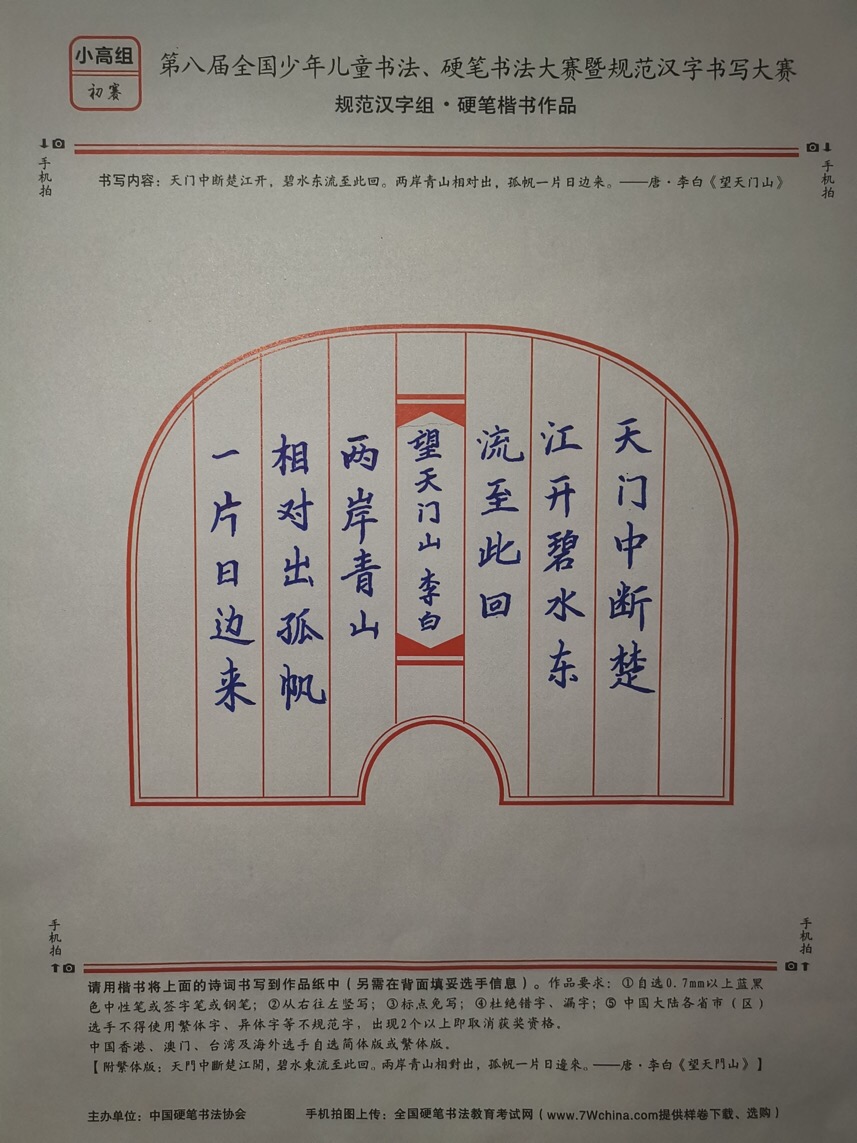 小高组
初赛
第八届全国少年儿童书法、硬笔书法大赛暨规范汉字书写大赛
规范汉字组·硬笔楷书作品
手机拍
手机拍
书写内容：天门中断楚江开，碧水东流至此回。两岸青山相对出，孤帆一片日边来。——唐·李白《望天门山》
天门中断楚
江开碧水东
流至此回
望天门山 李白
两岸青山
相对出孤帆
一片日边来
手机拍
手机拍
请用楷书将上面的诗词书写到作品纸中（另需在背面填妥选手信息）。作品要求：①自选0.7mm以上蓝黑
色中性笔或签字笔或钢笔；②从右往左竖写；③标点免写；④杜绝错字、漏字；⑤中国大陆各省市（区）
选手不得使用繁体字、异体字等不规范字，出现2个以上即取消获奖资格。
中国香港、澳门、台湾及海外选手自选简体版或繁体版。
【附繁体版：天門中斷楚江開，碧水東流至此回。兩岸青山相對出，孤帆一片日邊來。——唐·李白《望天門山》】
主办单位：中国硬笔书法协会
手机拍图上传：全国硬笔书法教育考试网（www.7Wchina.com提供样卷下载、选购）